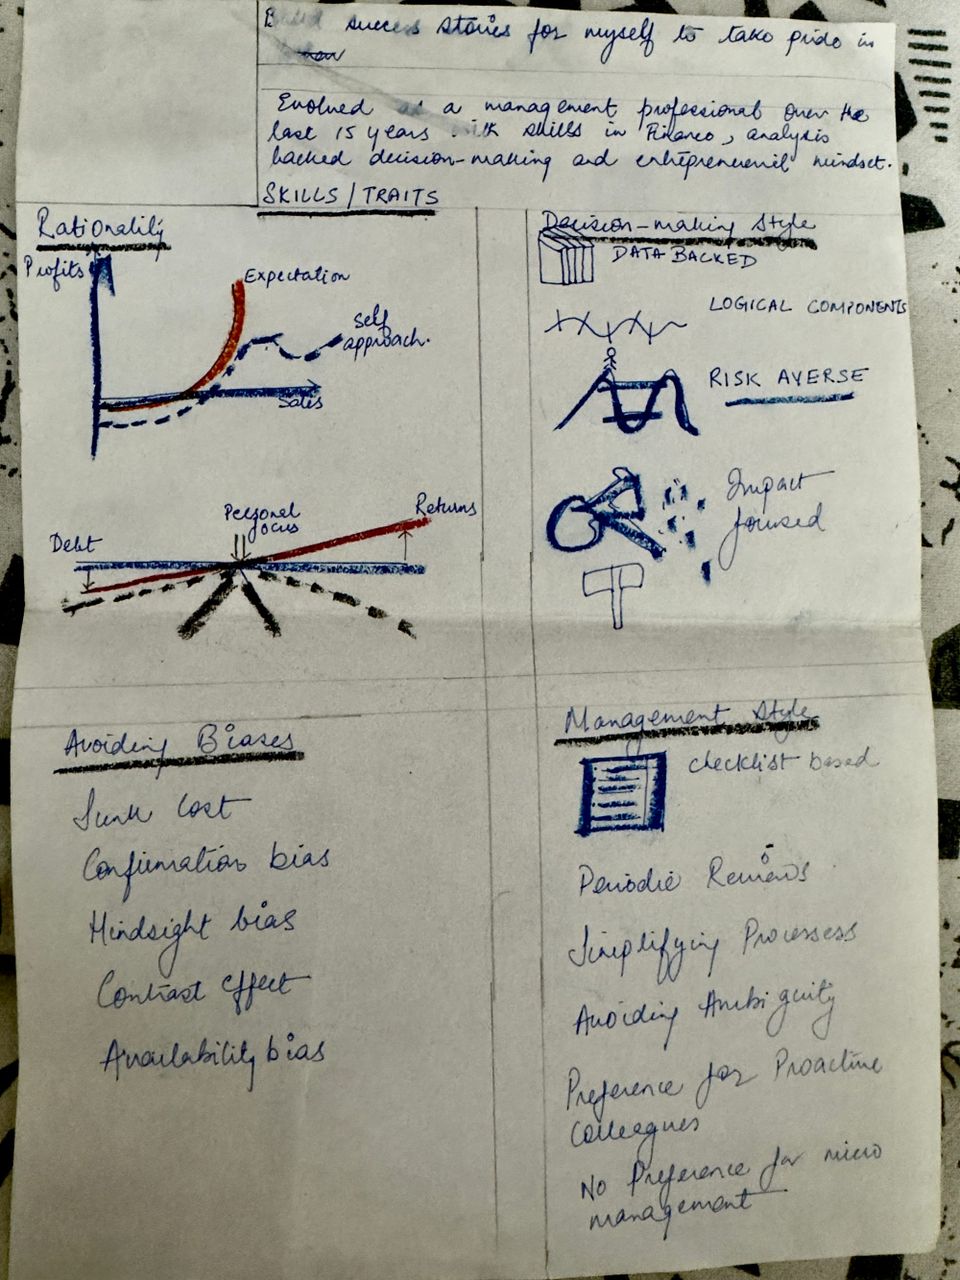 success stories for myself to take pride in
Evolved as a management professional over the
last 15 years with skills in Finance, analysis
backed decision-making and entrepreneurial mindset.
SKILLS / TRAITS
Rationality
Profits
Expectation
Self
approach.
Sales
Debt
Personal
focus
Returns
Decision-making Style
DATA BACKED
LOGICAL COMPONENTS
RISK AVERSE
Impact
focused
Avoiding Biases
Sunk Cost
Confirmation bias
Hindsight bias
Contrast effect
Availability bias
Management Style
checklist based
Periodic
Simplifying Processess
Avoiding Ambiguity
Preference for Proactive
Colleagues
No Preference for micro
management